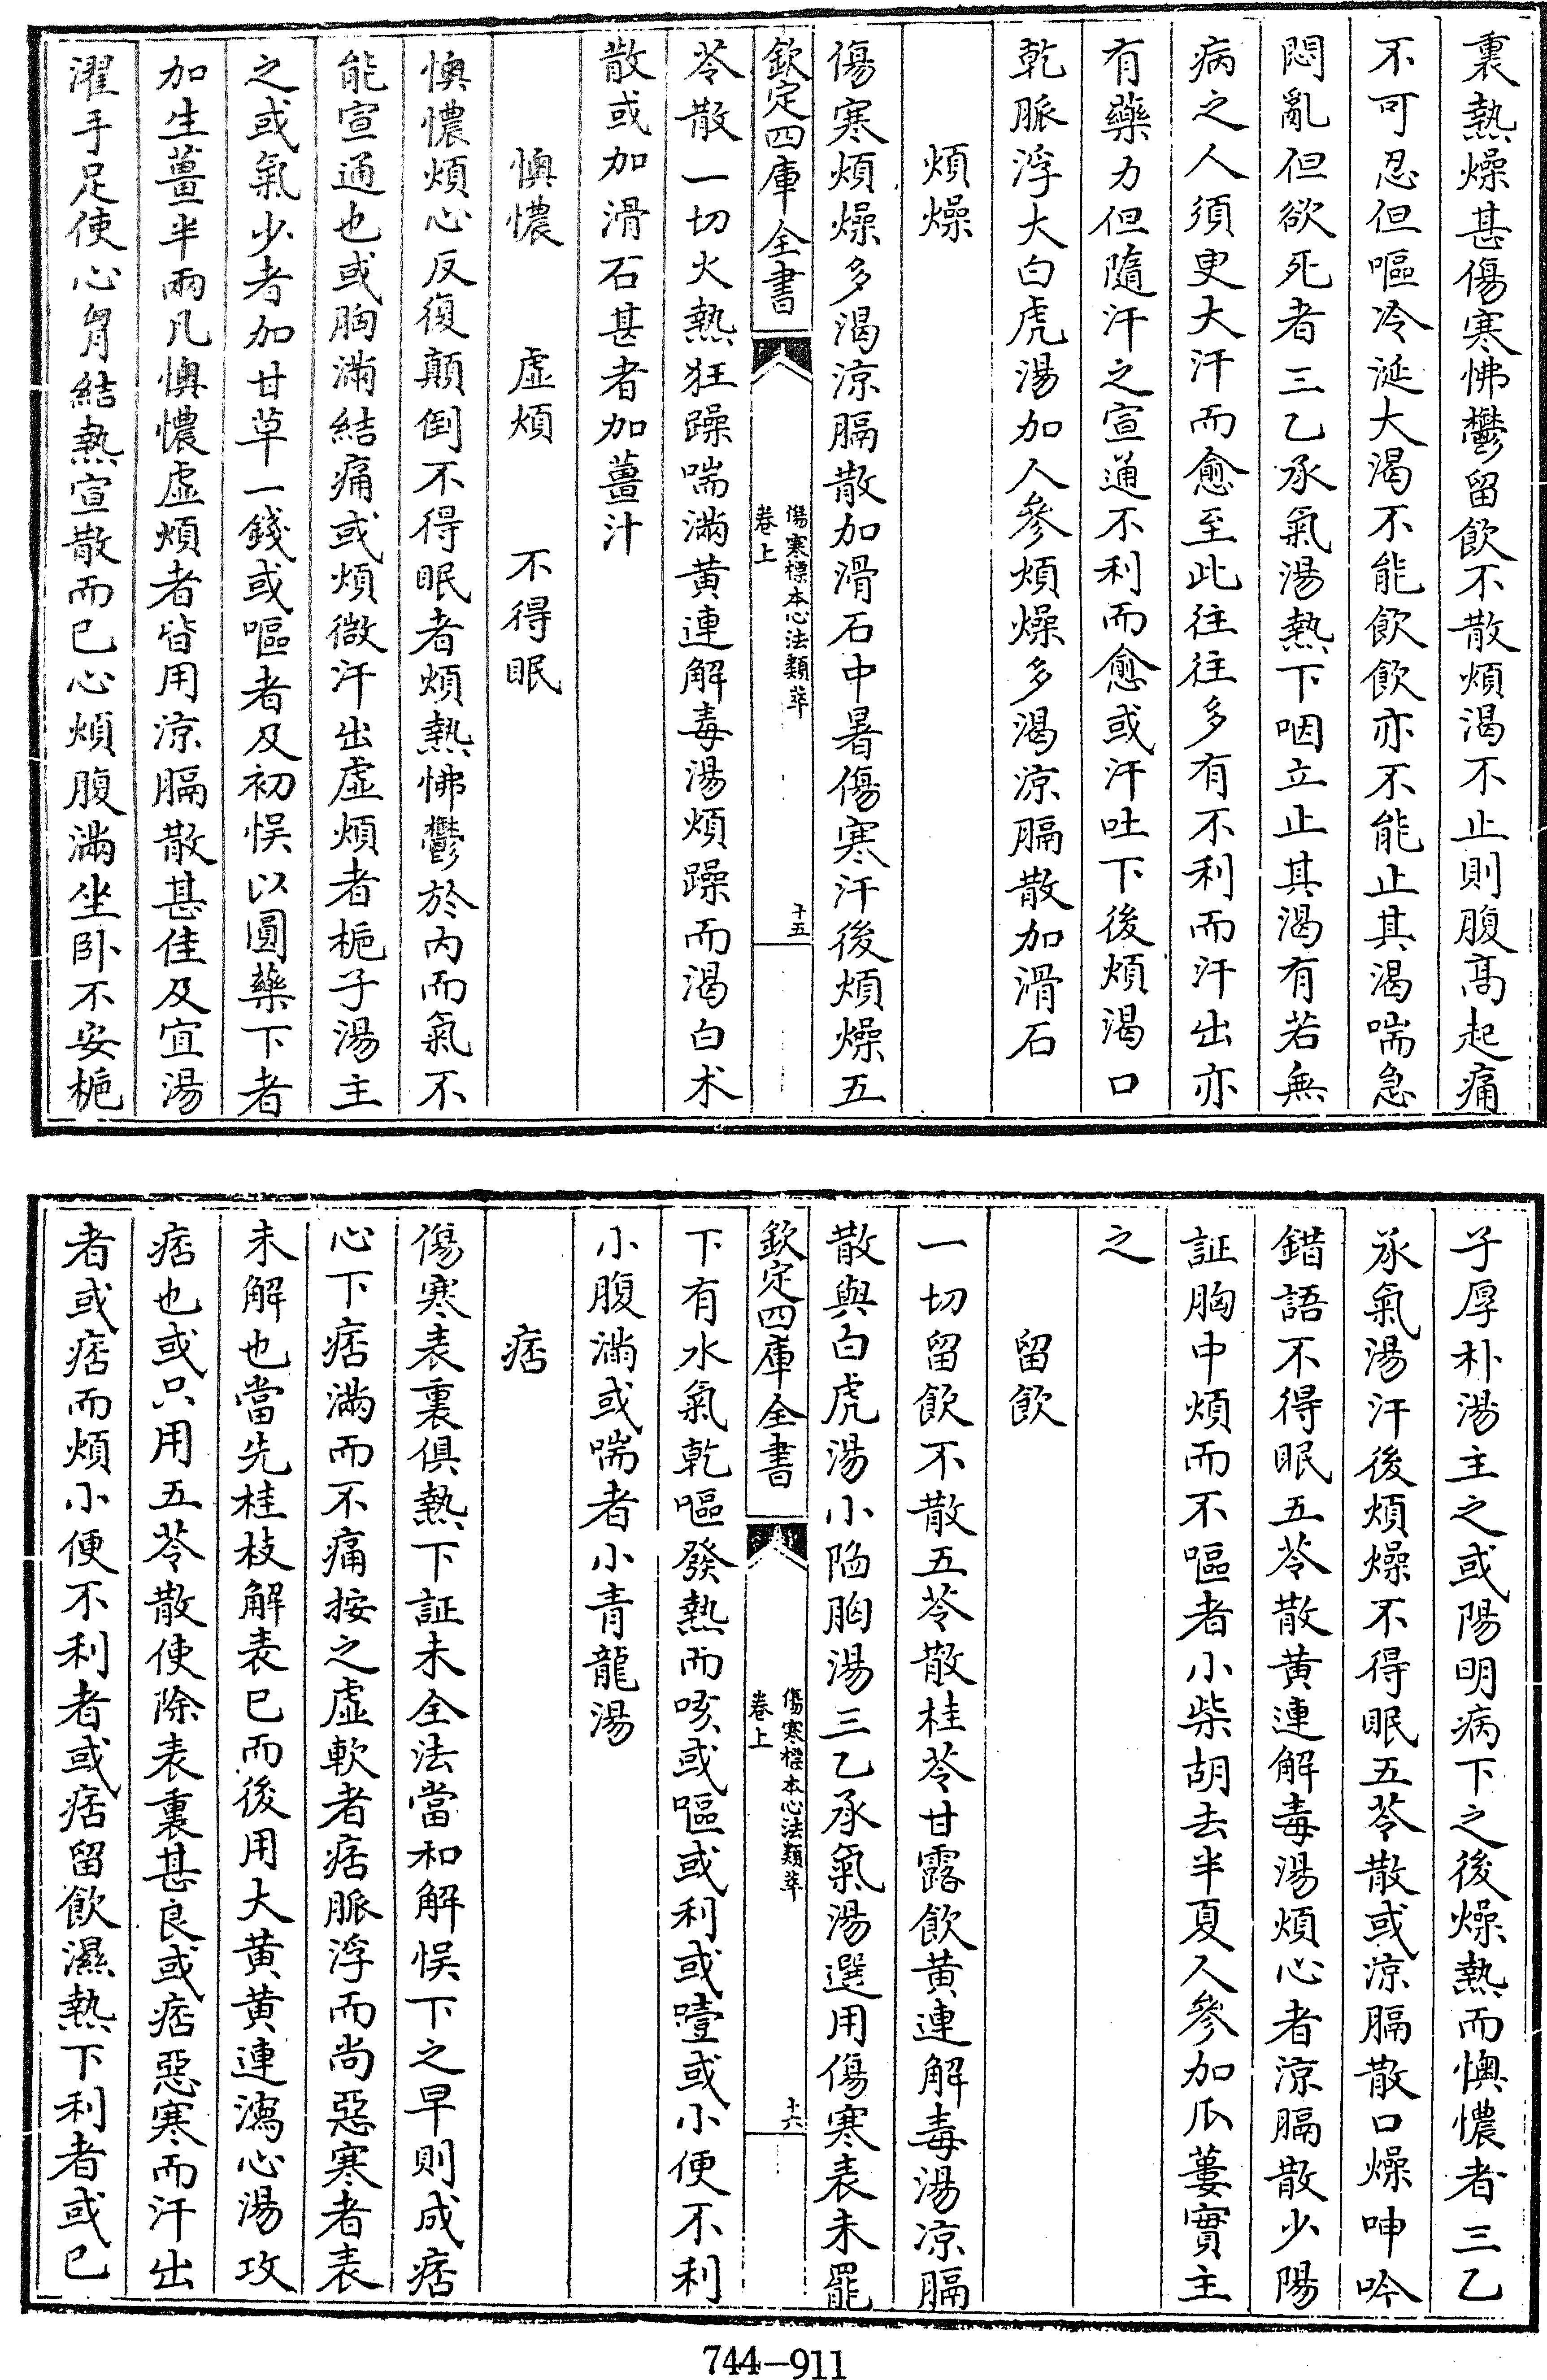 裏熱燥甚傷寒怫鬱留飲不散煩渴不止則腹高起痛
不可忍但嘔冷涎大渴不能飲飲亦不能止其渴喘急
悶亂但欲死者三乙承氣湯熱下咽立止其渴有若無
病之人須臾大汗而愈至此往往多有不利而汗出亦
有藥力但隨汗之宣通不利而愈或汗吐下後煩渴口
乾脈浮大白虎湯加人參煩燥多渴涼膈散加滑石
煩燥
傷寒煩燥多渴涼膈散加滑石中暑傷寒汗後煩燥五
欽定四庫全書
傷寒標本心法類萃
卷上
十五
苓散一切火熱狂躁喘滿黄連解毒湯煩躁而渴白术
散或加滑石甚者加薑汁
懊憹 虛煩 不得眠
懊憹煩心反復顛倒不得眠者煩熱怫鬱於内而氣不
能宣通也或胸滿結痛或煩微汗出虛煩者梔子湯主
之或氣少者加甘草一錢或嘔者及初悞以圓藥下者
加生薑半兩凡懊憹虛煩者皆用涼膈散甚佳及宜湯
濯手足使心胷結熱宣散而已心煩腹滿坐卧不安梔
子厚朴湯主之或陽明病下之後燥熱而懊憹者三乙
承氣湯汗後煩燥不得眠五苓散或涼膈散口燥呻吟
錯語不得眠五苓散黄連解毒湯煩心者涼膈散少陽
証胸中煩而不嘔者小柴胡去半夏人參加瓜蔞實主
之
留飲
一切留飲不散五苓散桂苓甘露飲黄連解毒湯凉膈
散與白虎湯小陷胸湯三乙承氣湯選用傷寒表未罷
欽定四庫全書
傷寒標本心法類萃
卷上
十六
下有水氣乾嘔發熱而咳或嘔或利或噎或小便不利
小腹滿或喘者小青龍湯
痞
傷寒表裏俱熱下証未全法當和解悞下之早則成痞
心下痞滿而不痛按之虛軟者痞脈浮而尚惡寒者表
未解也當先桂枝解表已而後用大黄黄連瀉心湯攻
痞也或只用五苓散使除表裏甚良或痞惡寒而汗出
者或痞而煩小便不利者或痞留飲濕熱下利者或已
744—911